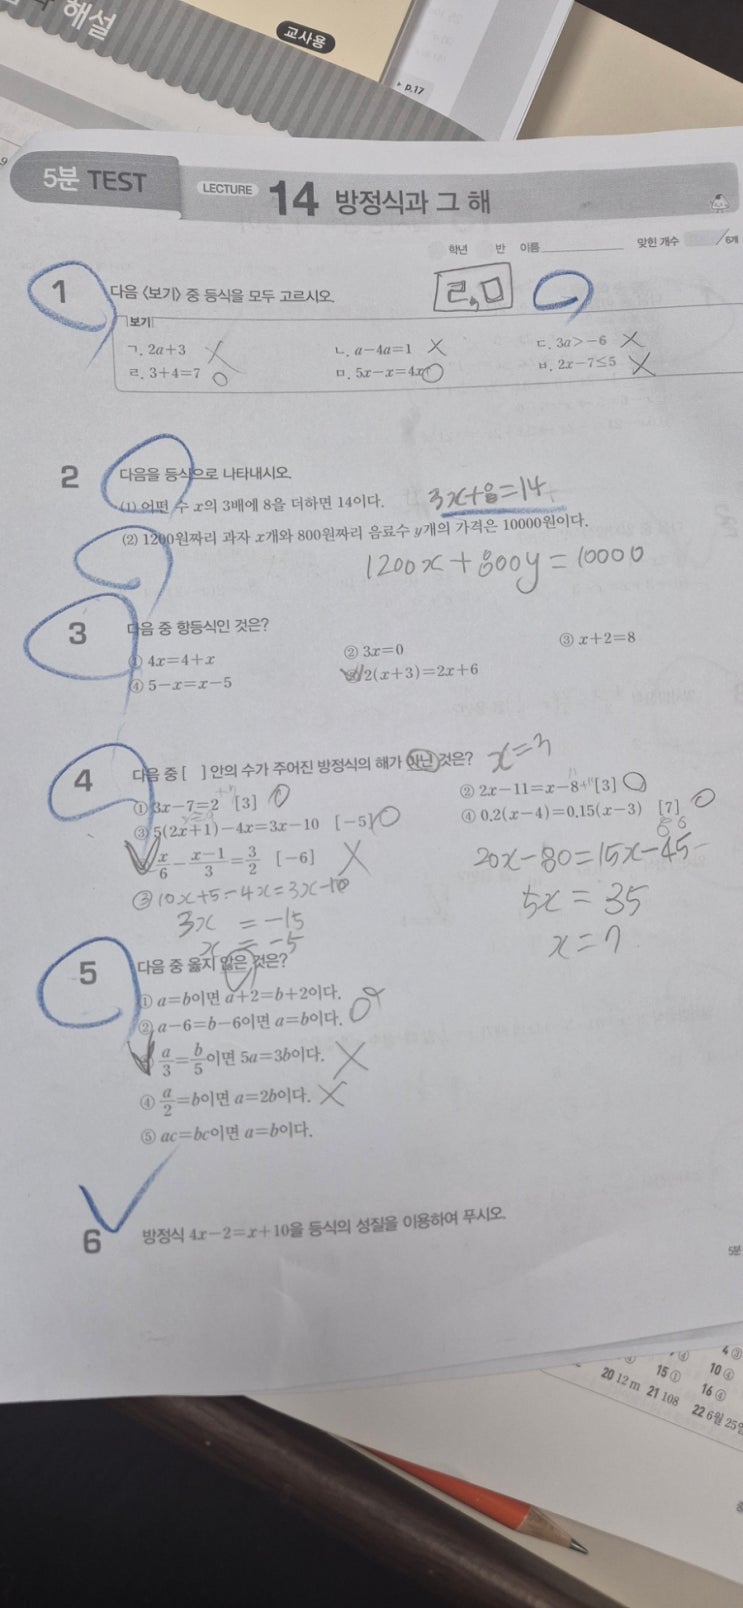 해설
교사용
p.17
5분 TEST
LECTURE 14 방정식과 그 해
학년 반 이름 맞힌 개수 /6개
1 다음 〈보기〉 중 등식을 모두 고르시오.
ㄹ, ㅁ
보기
ㄱ. 2a+3 X ㄴ. a-4a=1 X ㄷ. 3a>-6 X
ㄹ. 3+4=7 O ㅁ. 5x-x=4x O ㅂ. 2x-7≤5 X
2 다음을 등식으로 나타내시오.
(1) 어떤 수 x의 3배에 8을 더하면 14이다. 3x+8=14
(2) 1200원짜리 과자 x개와 800원짜리 음료수 y개의 가격은 10000원이다.
1200x+800y=10000
3 다음 중 항등식인 것은?
① 4x=4+x ② 3x=0 ③ x+2=8
④ 5-x=x-5 ⑤ 2(x+3)=2x+6
4 다음 중 [ ] 안의 수가 주어진 방정식의 해가 아닌 것은? x=3
① 3x-7=2 [3] O ② 2x-11=x-8 [3] O
③ 5(2x+1)-4x=3x-10 [-5] O ④ 0.2(x-4)=0.15(x-3) [7] O
x/6-(x-1)/3=3/2 [-6] X
20x-80=15x-45
③ 10x+5-4x=3x-10
5x=35
3x=-15
x=7
x=-5
5 다음 중 옳지 않은 것은?
① a=b이면 a+2=b+2이다.
② a-6=b-6이면 a=b이다. O
a/3=b/5이면 5a=3b이다. X
④ a/2=b이면 a=2b이다. X
⑤ ac=bc이면 a=b이다.
6 방정식 4x-2=x+10을 등식의 성질을 이용하여 푸시오.
5분
4 ③
15 ① 10 ④
20 12 m 21 108 16 ④
22 6월 25일